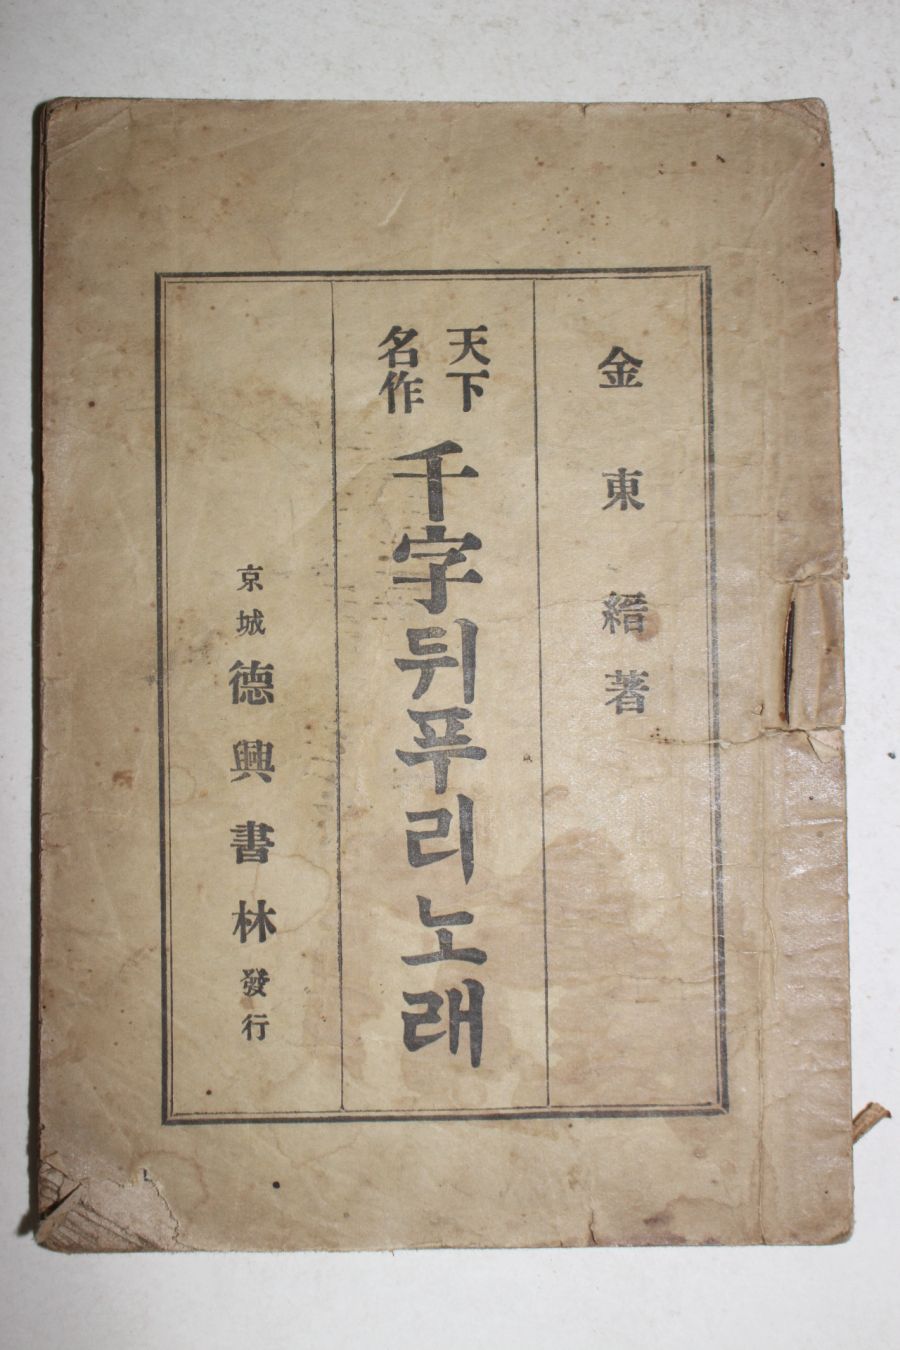 金東縉著
天下
名作
千字뒤푸리노래
京城 德興書林 發行